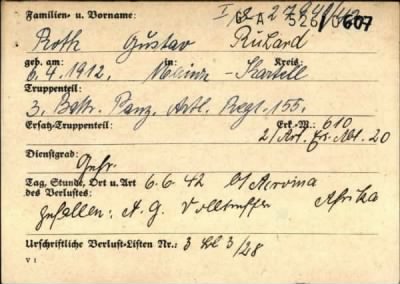 Familien- u. Vorname:
Roth Gustav Richard
geb. am: in: Kreis:
6.4.1912. Mainz - Kastell
Truppenteil:
3. Battr. Panz. Artl. Regt. 155.
Ersatz-Truppenteil: Erk.-M.: 610
2/Art. Ers. Abt. 20
Dienstgrad:
Gefr.
Tag, Stunde, Ort u. Art 6.6.42
des Verlustes: Afrika
gefallen: A. G. Volltreffer
Urschriftliche Verlust-Listen Nr.: 3 3/28
V 1